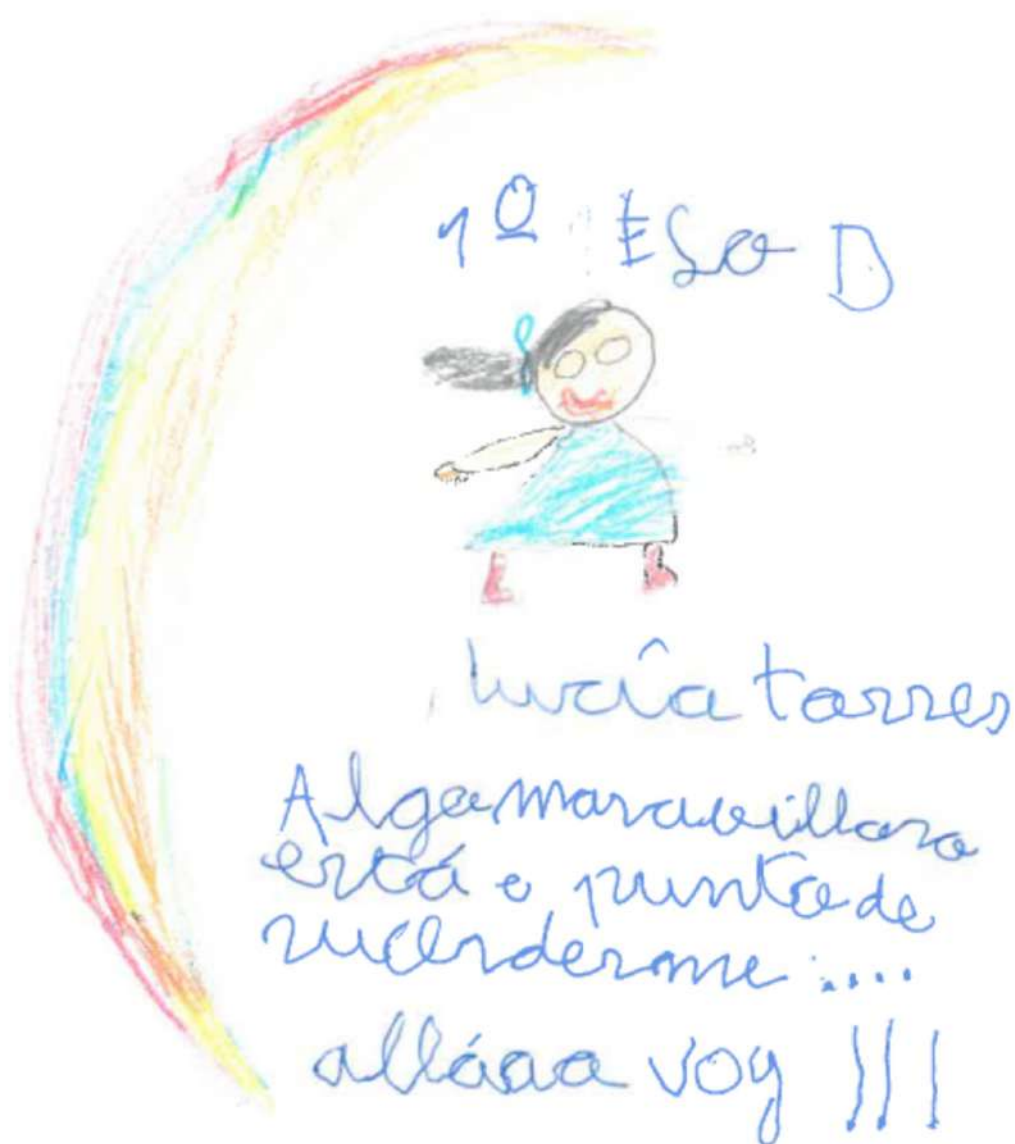 1º ESO D
lucía torres
Algo maravilloso
está a punto de
sucederme :....
alláaa voy !!!